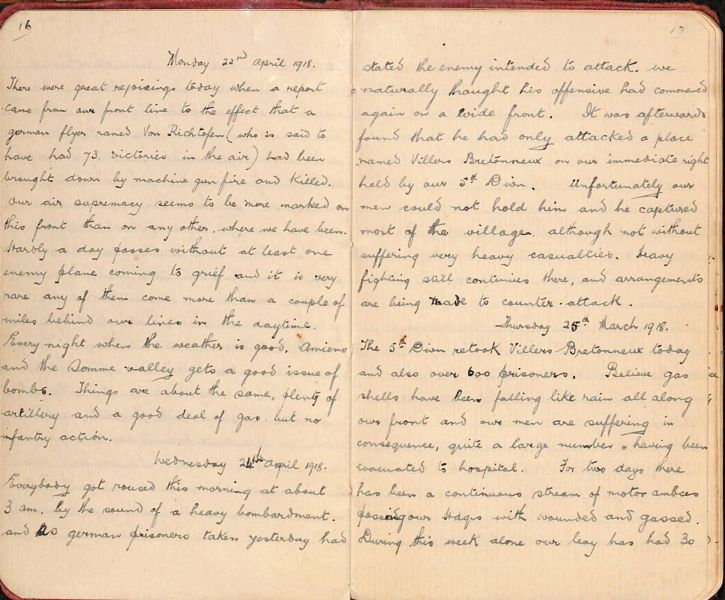 16
Monday 22nd April 1918.
There were great rejoicings today when a report
came from our front line to the effect that a
german flyer named Von Richtofen (who is said to
have had 73. victories in the air) had been
brought down by machine gun fire and killed.
Our air supremacy seems to be more marked on
this front than on any other, where we have been.
Hardly a day passes without at least one
enemy plane coming to grief and it is very
rare any of them come more than a couple of
miles behind our lines in the daytime.
Every night when the weather is good, Amiens
and the Somme valley gets a good issue of
bombs. Things are about the same, plenty of
artillery and a good deal of gas. but no
infantry action.
Wednesday 24th April 1918.
Everybody got roused this morning at about
3 am. by the sound of a heavy bombardment.
and as german prisoners taken yesterday had
17
stated the enemy intended to attack. we
naturally thought his offensive had commenced
again on a wide front. It was afterwards
found that he had only attacked a place
named Villers Bretonneux on our immediate right
held by our 5th Divn. Unfortunately our
men could not hold him and he captured
most of the village, although not without
suffering very heavy casualties. Heavy
fighting still continues there, and arrangements
are being made to counter-attack.
Thursday 25th March 1918.
The 5th Divn retook Villers Bretonneux today
and also over 600 prisoners. Believe gas
shells have been falling like rain all along
our front and our men are suffering in
consequence, quite a large number having been
evacuated to hospital. For two days there
has been a continuous stream of motor ambces
passing our Hdqrs with wounded and gassed.
During this week alone our <br> has had 30